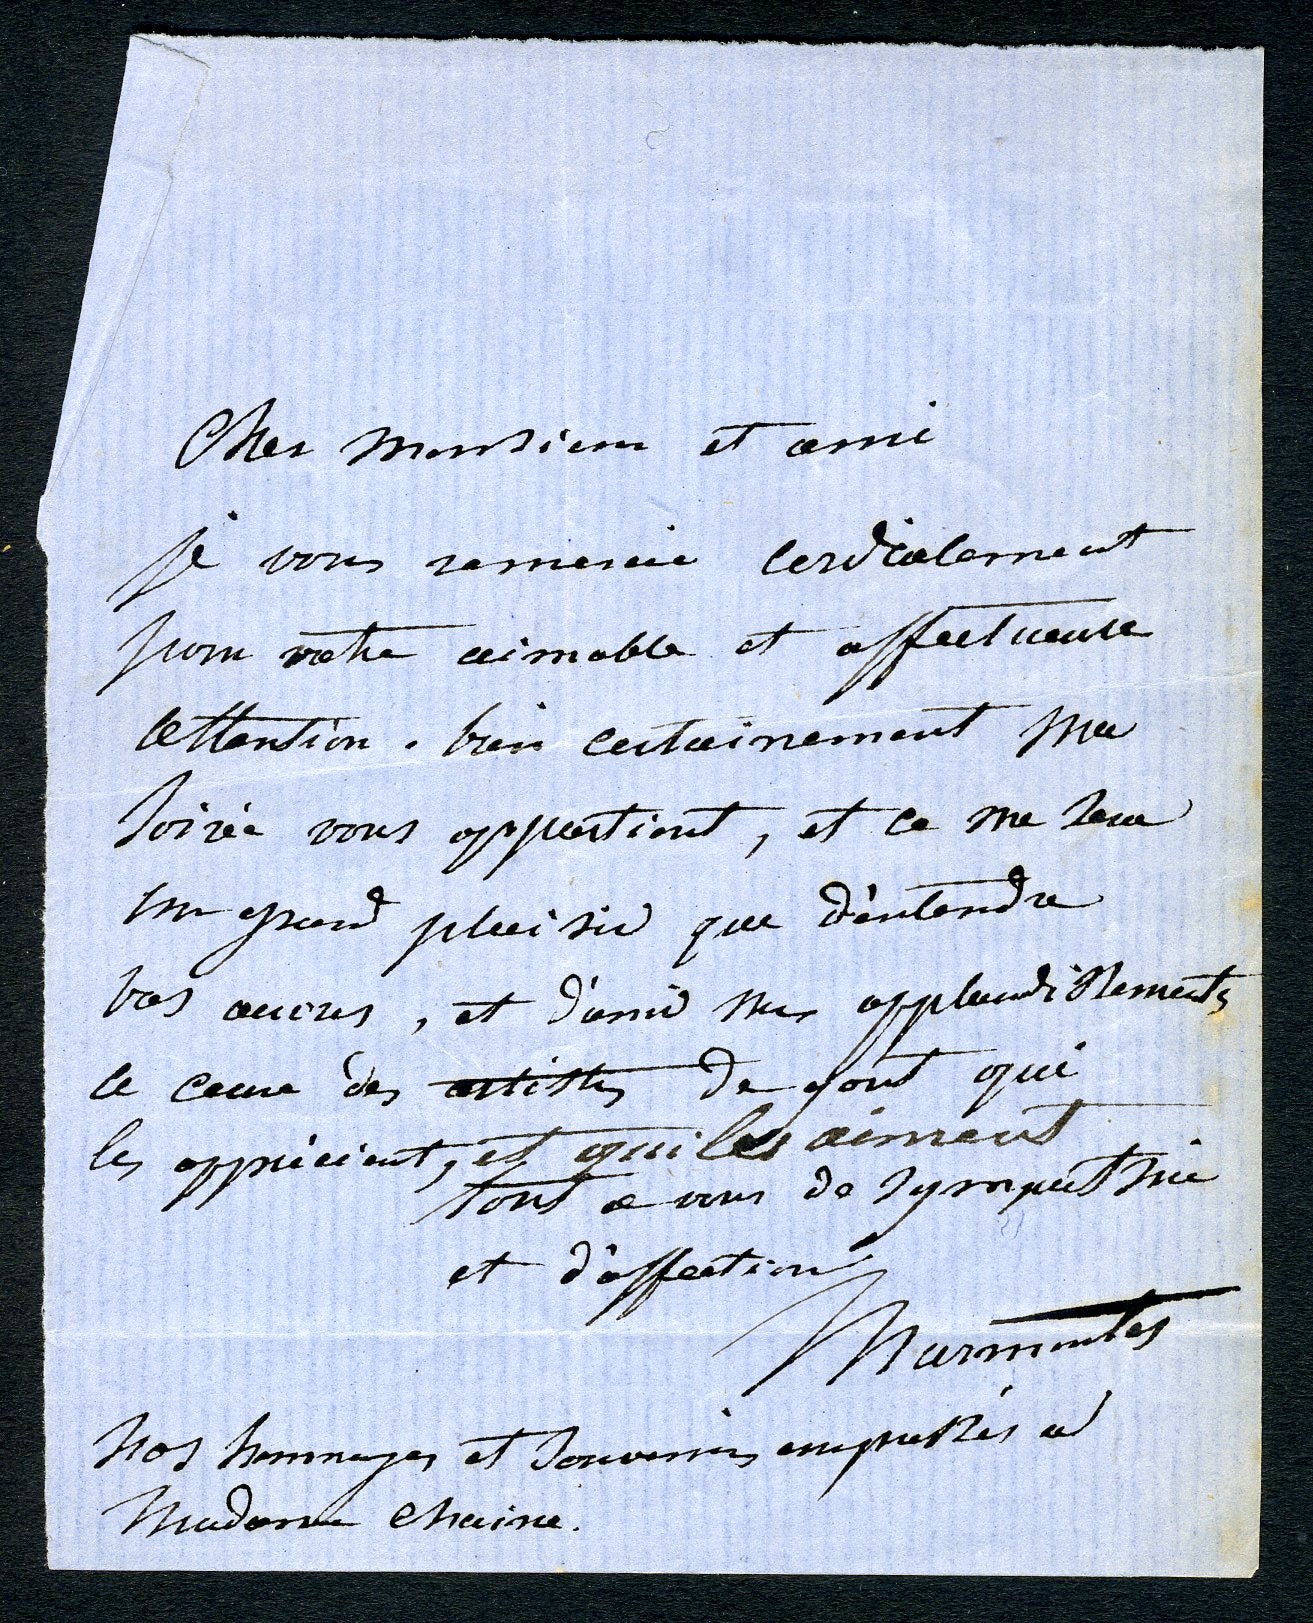 Cher Monsieur et ami
je vous remercie cordialement
pour votre aimable et affectueuse
attention. bien certainement ma
soirée vous appartient, et ce me sera
un grand plaisir que d'entendre
vos œuvres, et d'unir mes applaudissements
a ceux des artistes de gout qui
les apprécient, et qui les aiment
tout a vous de sympathie
et d'affection
Marmontel
Nos hommages et souvenirs empressés a
Madame Chaine.